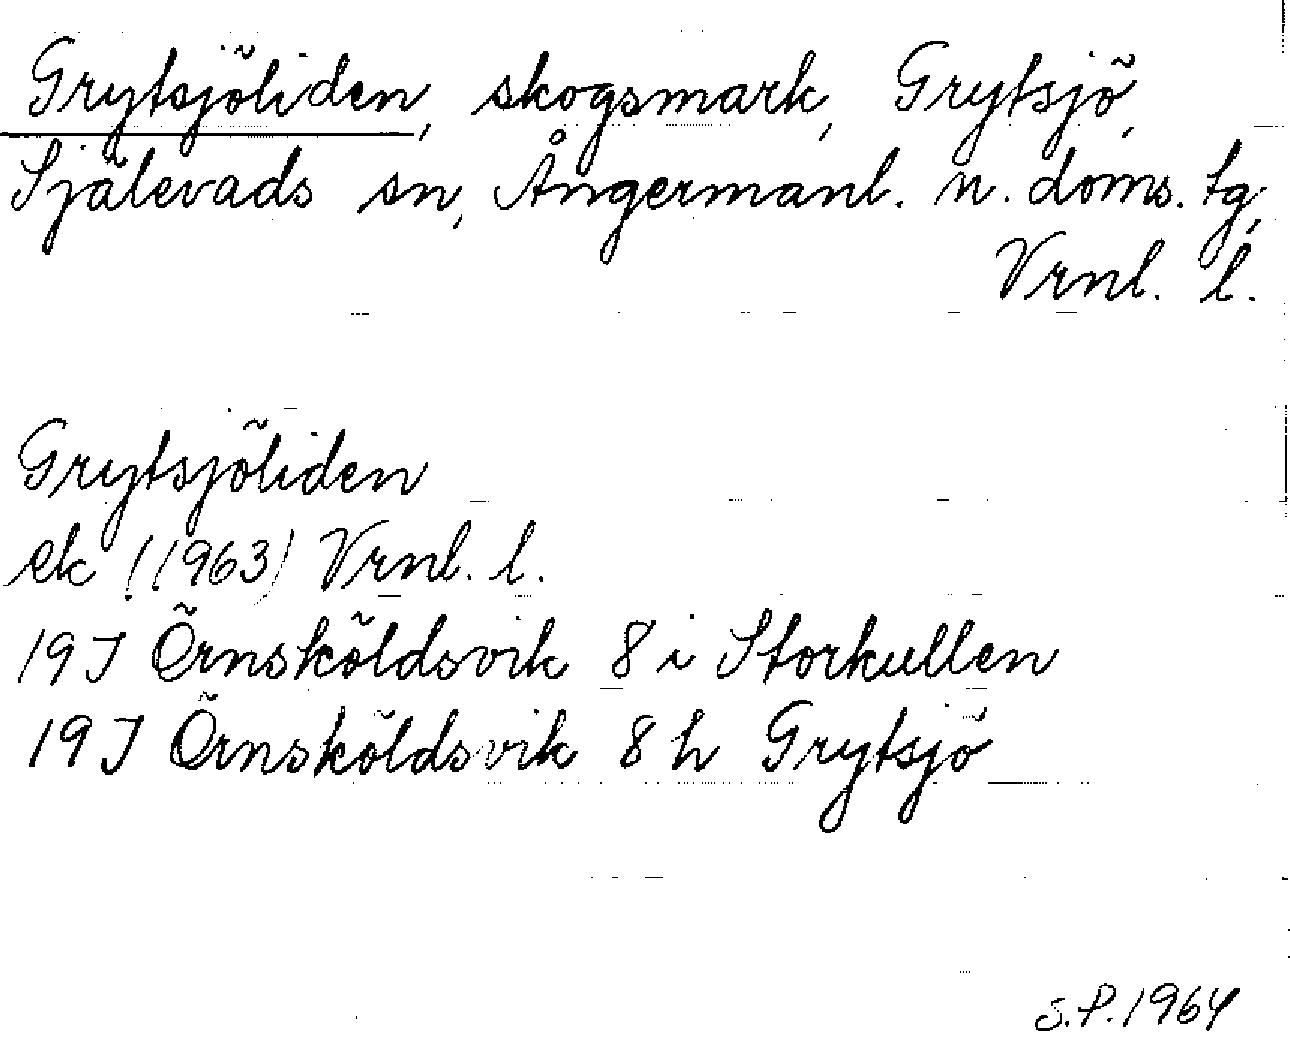 Grytsjöliden, skogsmark, Grytsjö,
Själevads sn, Ångermanl. n. doms. tg,
Vrnl. l.
Grytsjöliden
ek (1963) Vrnl. l.
19J Örnsköldsvik 8 i Storkullen
19J Örnsköldsvik 8 h Grytsjö
S.P. 1964